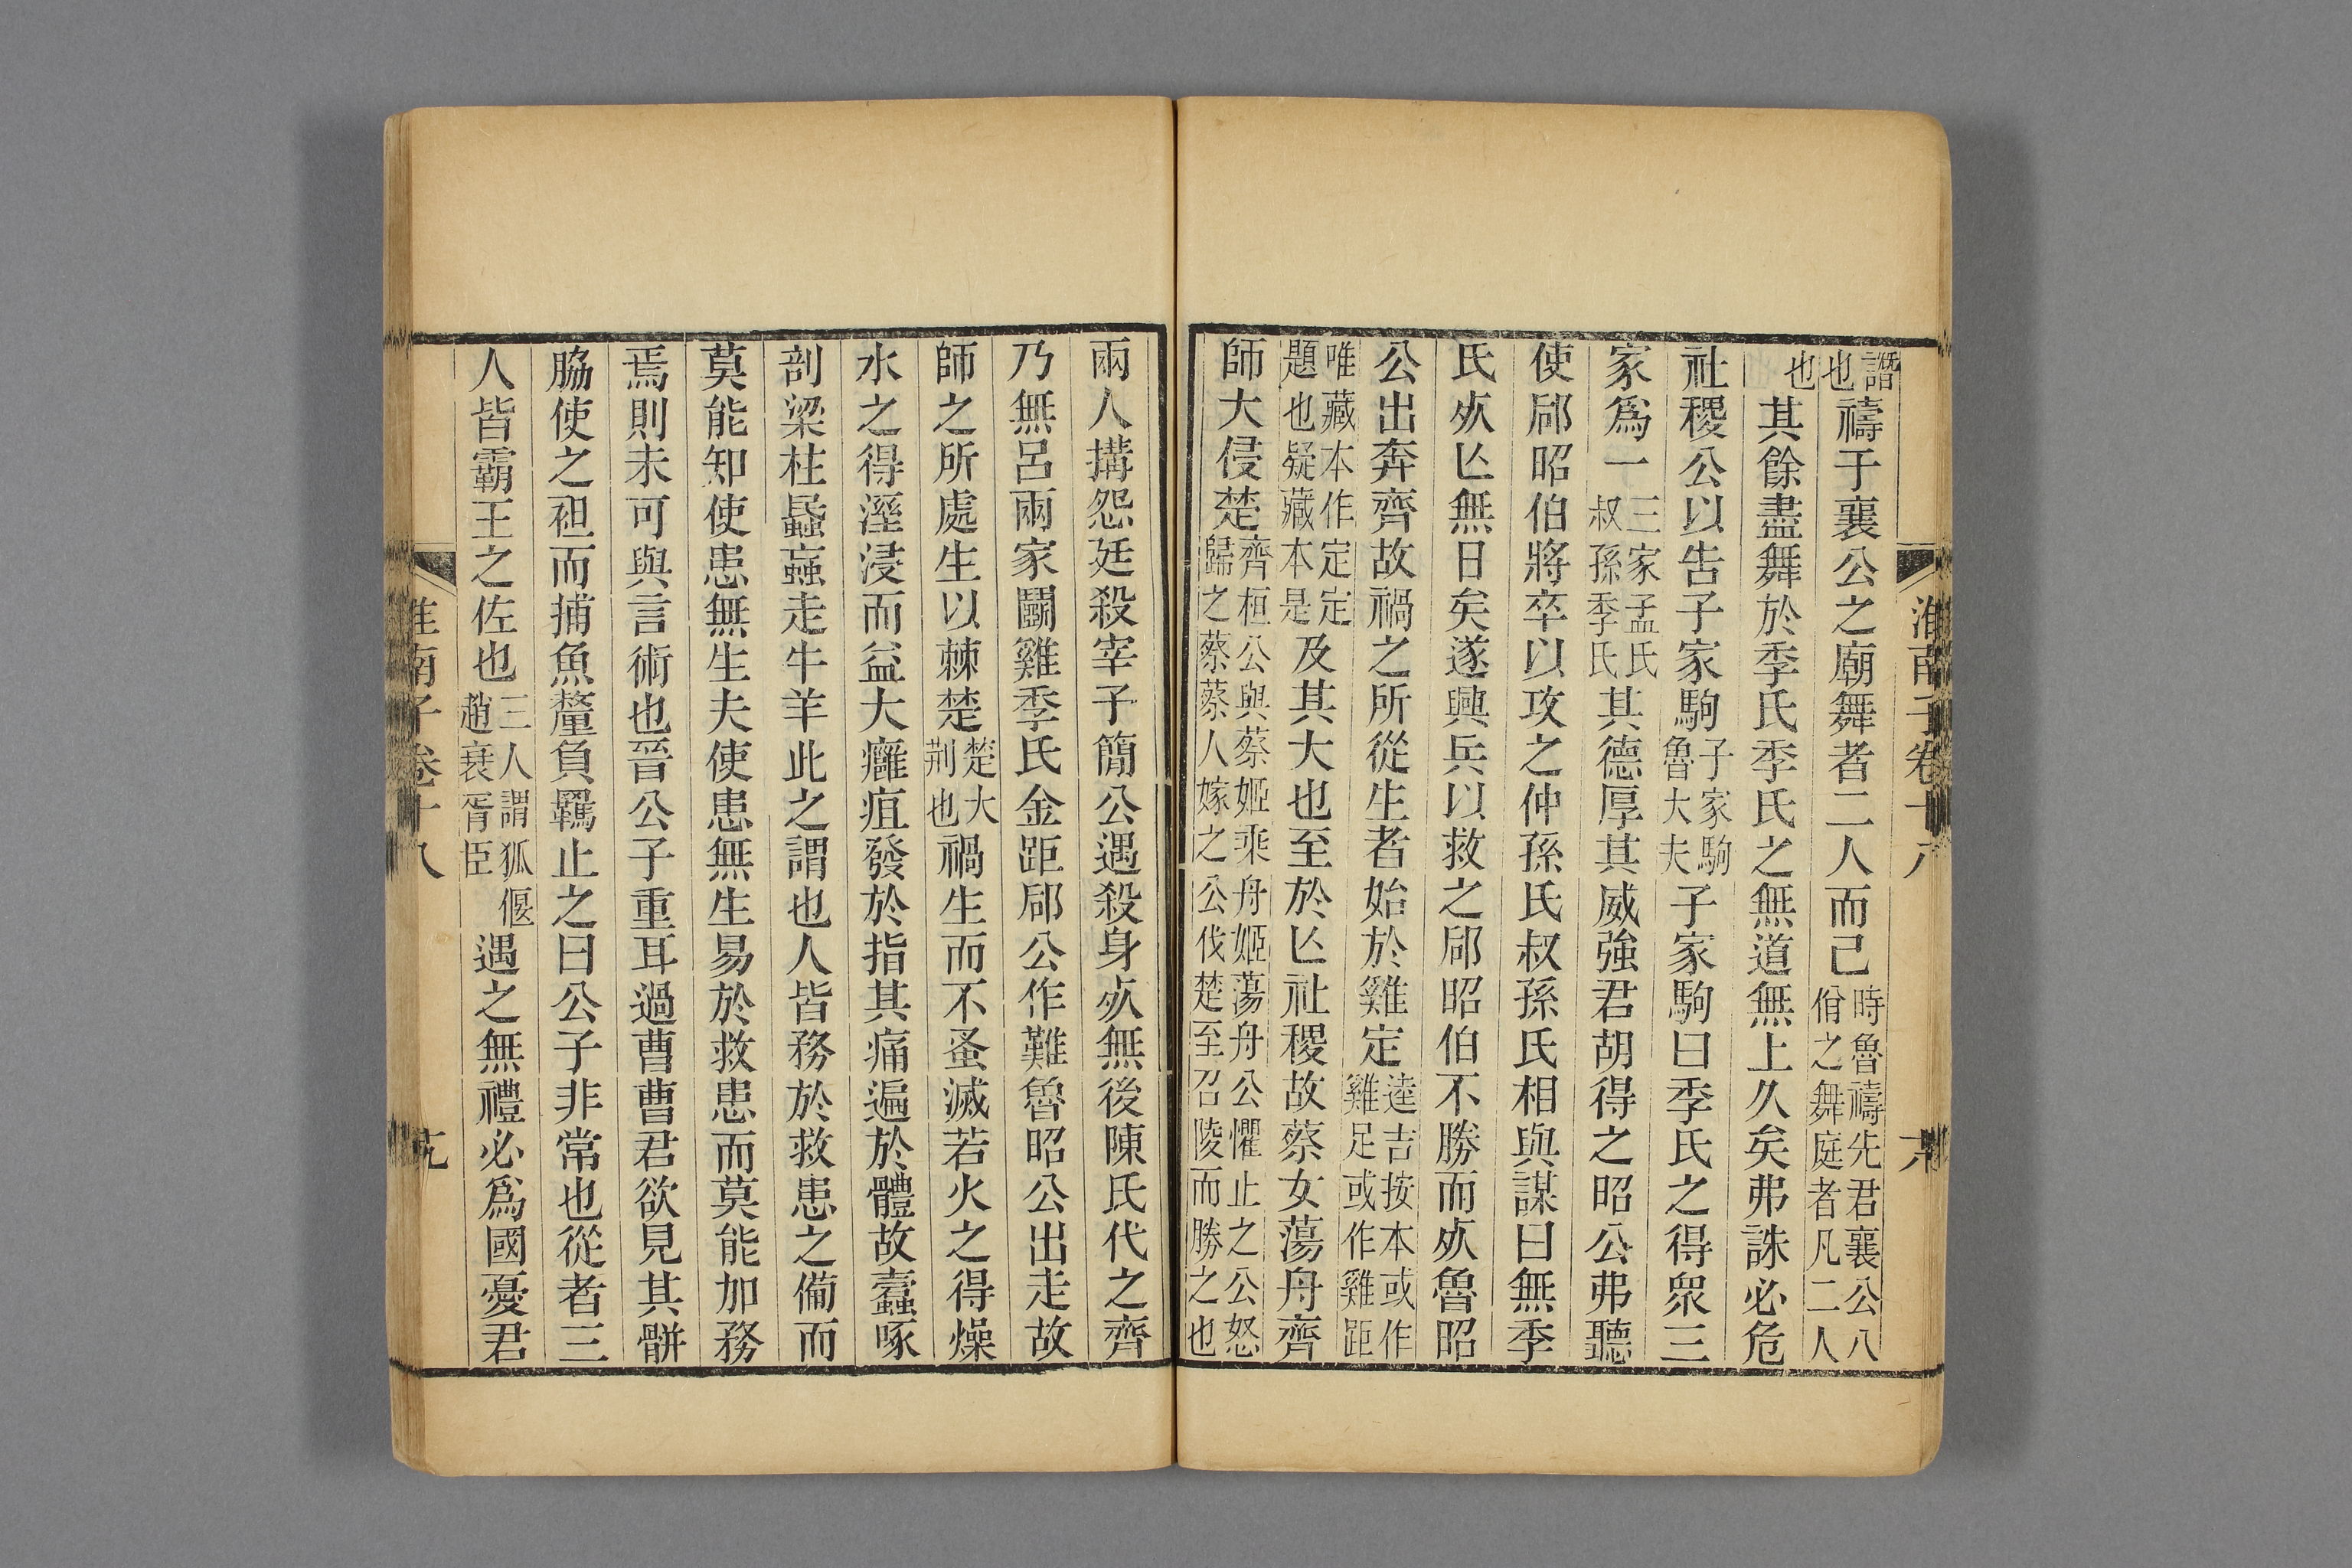 淮南子卷十八
六
譖也禱于襄公之廟舞者二人而己時魯禱先君襄公八佾之舞庭者凡二人
也其餘盡舞於季氏季氏之無道無上久矣弗誅必危
社稷公以告子家駒子家駒魯大夫子家駒曰季氏之得眾三
家爲一三家孟氏叔孫季氏其德厚其威強君胡得之昭公弗聽
使郈昭伯將卒以攻之仲孫氏叔孫氏相與謀曰無季
氏㱙亾無日矣遂興兵以救之郈昭伯不勝而㱙魯昭
公出奔齊故禍之所從生者始於雞定逵吉按本或作雞足或作雞距
唯藏本作定定題也疑藏本是及其大也至於亾社稷故蔡女蕩舟齊
師大侵楚齊桓公與蔡姬乘舟姬蕩舟公懼止之公怒歸之蔡蔡人嫁之公伐楚至召陵而勝之也
兩人搆怨廷殺宰予簡公遇殺身㱙無後陳氏代之齊
乃無呂兩家鬭雞季氏金距郈公作難魯昭公出走故
師之所處生以棘楚楚大荆也禍生而不蚤滅若火之得燥
水之得溼浸而益大癰疽發於指其痛遍於體故蠹啄
剖梁柱蟁䖟走牛羊此之謂也人皆務於救患之備而
莫能知使患無生夫使患無生易於救患而莫能加務
焉則未可與言術也晉公子重耳過曹曹君欲見其骿
脇使之袒而捕魚釐負羈止之曰公子非常也從者三
人皆霸王之佐也三人謂狐偃趙衰胥臣遇之無禮必爲國憂君
淮南子卷十八